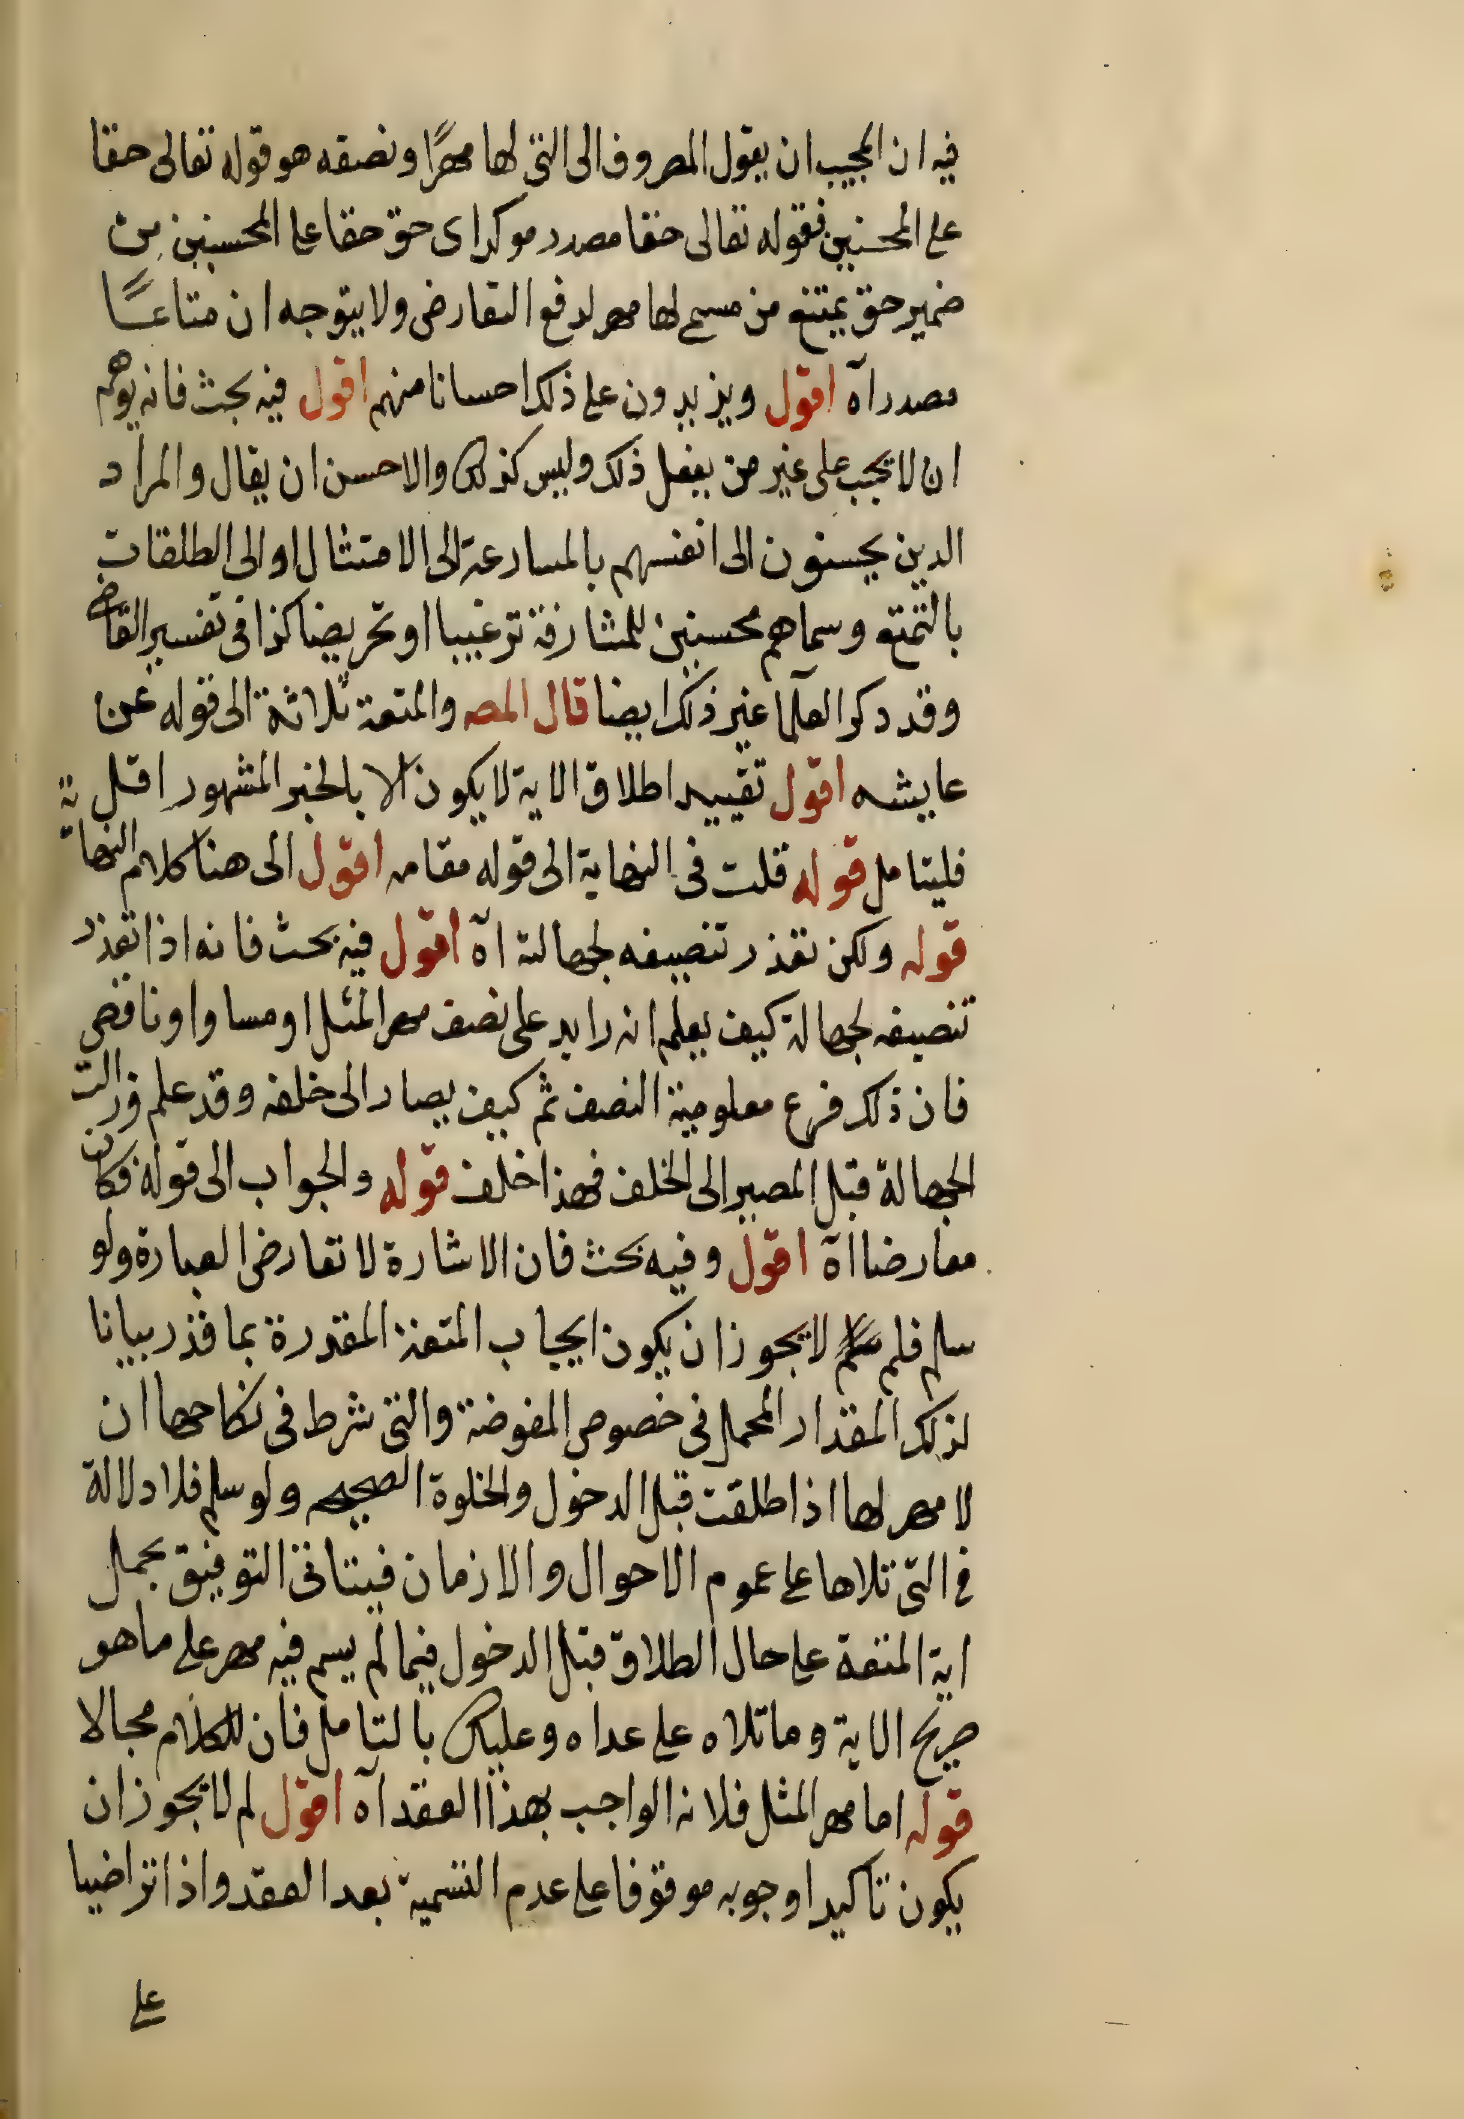 فيه ان المجيب ان يقول المصروف الى التى لها مهرًا ونصفه هو قوله تعالى حقا
على المحسنين فقوله تعالى حقا مصدر موكد اى حق حقا على المحسنين من
ضمير حق يمتنع من مسمى لها مهر لدفع التعارض ولا يتوجه ان متاعًا
مصدر اآه اقول ويزيدون على ذلك احسانا منهم اقول فيه بحث فانه يوهم
ان لا يجب على غير من يفعل ذلك وليس كذلك والاحسن ان يقال والمراد
الدين يحسنون الى انفسهم بالمسارعة الى الامتثال او الى المطلقات
بالتمتع وسماهم محسنين للمشارفة ترغيبا او تحريضا كذا فى تفسير القاضى
وقد دكر العلما غير ذلك ايضا قال المصه والمتعة ثلاثة الى قوله عن
عايشه اقول تقييد اطلاق الاية لا يكون الا بالخبر المشهور اقل
فليتامل قوله قلت فى النهاية الى قوله مقامه اقول الى هنا كلام النهاية
قوله ولكن تعذر تنصيفه لجهالته اآه اقول فيه بحث فانه اذا تعذر
تنصيفه لجهالة كيف يعلم انه زايد على نصف مهر المثل او مساو او ناقص
فان ذلك فرع معلومية النصف ثم كيف يصار الى خلفه وقد علم وزالت
الجهالة قبل المصير الى الخلف فهذا خلف قوله والجواب الى قوله فكان
معارضا اآه اقول وفيه بحث فان الاشارة لا تعارض العبارة ولو
سلم فلم لا يجوز ان يكون ايجاب المتعة المقدرة بما قدر بيانا
لذلك المقدار المجمل فى خصوص المفوضة والتى شرط فى نكاحها ان
لا مهر لها اذا طلقت قبل الدخول والخلوة الصحيحه ولو سلم فلا دلالة
فى التى تلاها على عموم الاحوال والازمان فيتاتى التوفيق بحمل
اية المتعة على حال الطلاق قبل الدخول فيما لم يسم فيه مهر على ما هو
صريح الاية وما تلاه على عداه وعليك بالتامل فان للكلام مجالا
قوله اما مهر المثل فلانه الواجب بهذا العقد اآه اقول لم لا يجوز ان
يكون تاكيد اوجوبه موقوفا على عدم التسمية بعد العقد واذا تراضيا
على